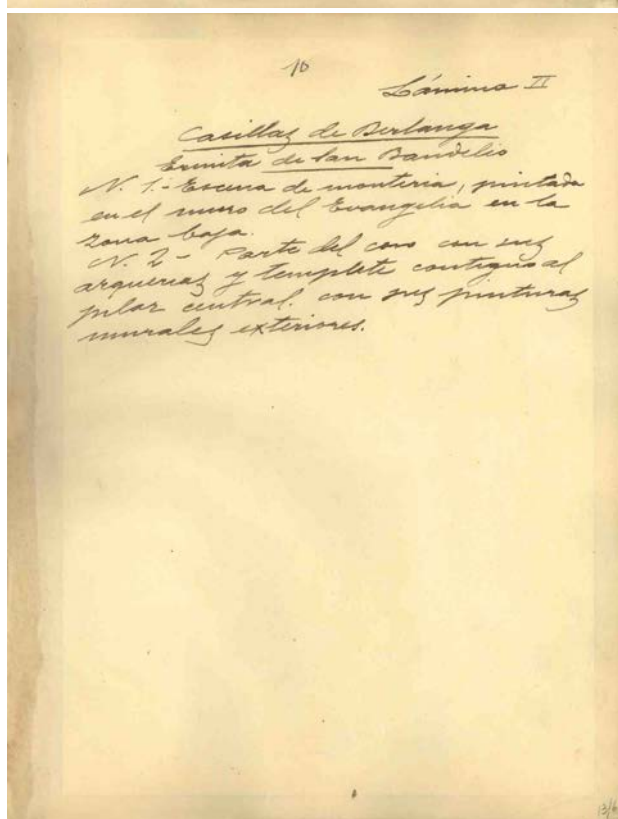 10
Lámina II
Casillas de Berlanga
Ermita de San Baudelio
N. 1.- Escena de montería, pintada
en el muro del Evangelio en la
zona baja.
N. 2 - Parte del coro con sus
arquerias y templete contiguo al
pilar central. con sus pinturas
murales exteriores.